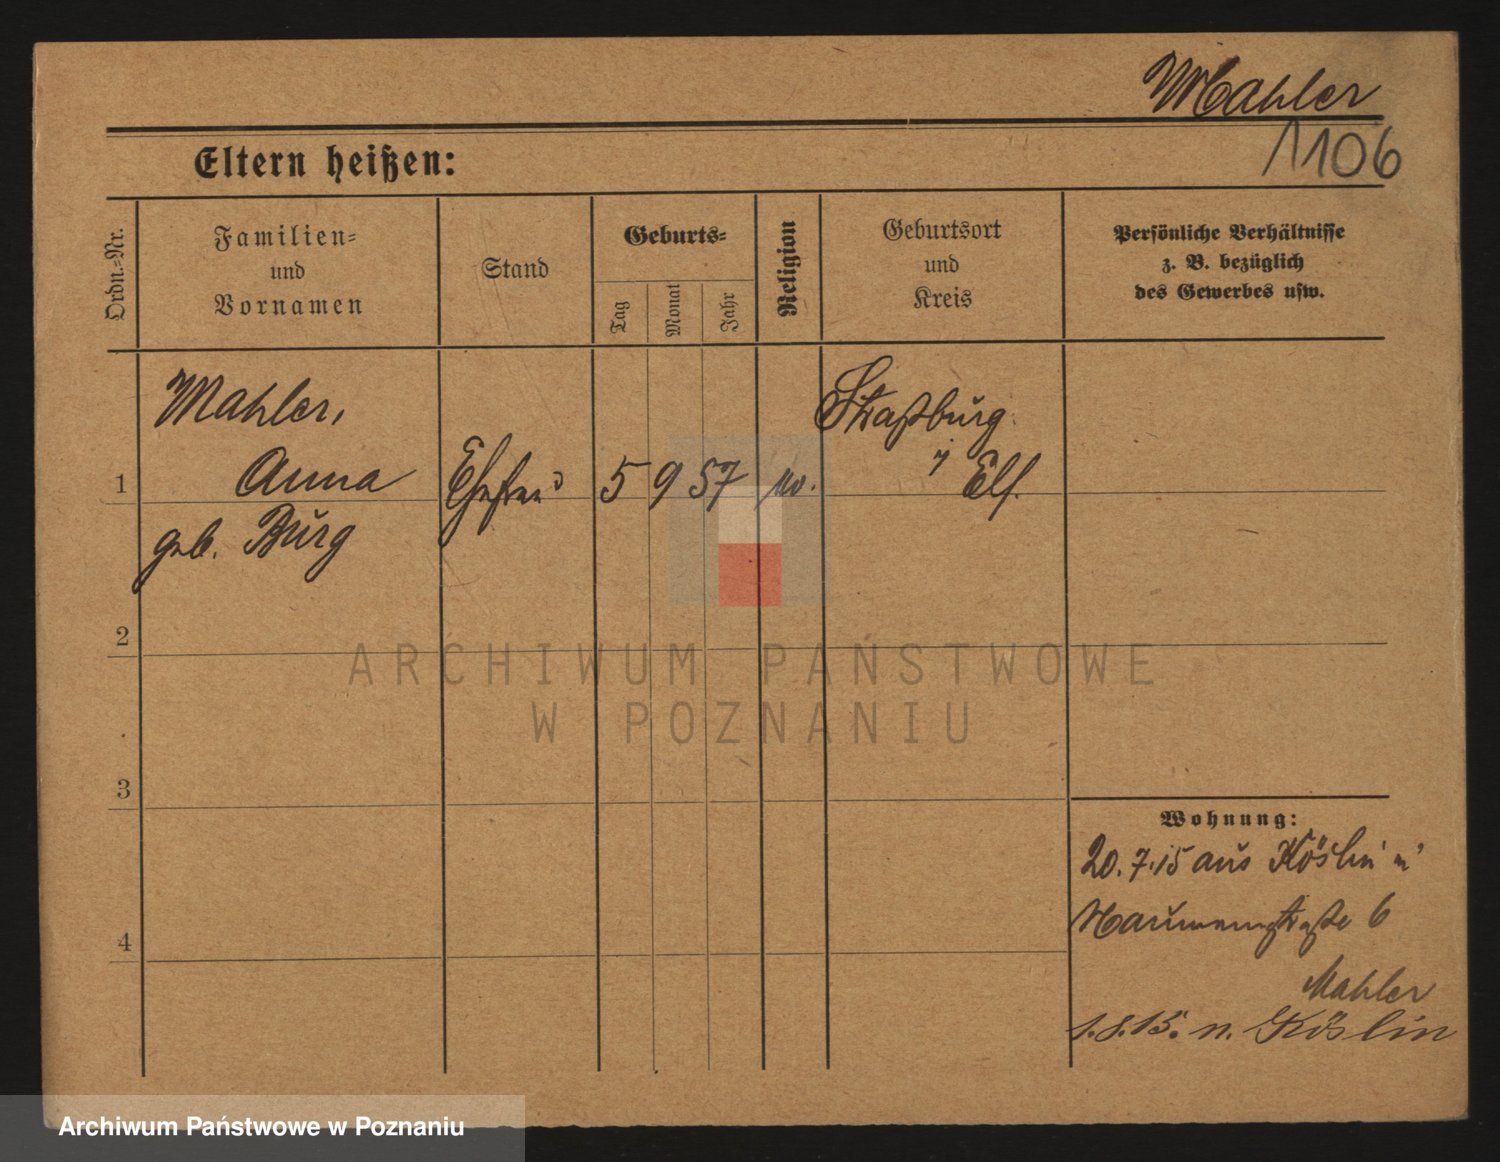 Mahler
1106
Eltern heißen:
Ordn.=Nr.
Familien=
und
Vornamen
Stand
Geburts=
Tag
Monat
Jahr
Religion
Geburtsort
und
Kreis
Persönliche Verhältnisse
z. B. bezüglich
des Gewerbes usw.
Mahler,
Anna
geb. Burg
1
Ehefrau
5 9 57
Straßburg
Els.
2
3
4
Wohnung:
20.7.15 aus Köslin
Naumannstraße 6
Mahler
1.8.15. n. Köslin
ARCHIWUM PAŃSTWOWE
W POZNANIU
Archiwum Państwowe w Poznaniu